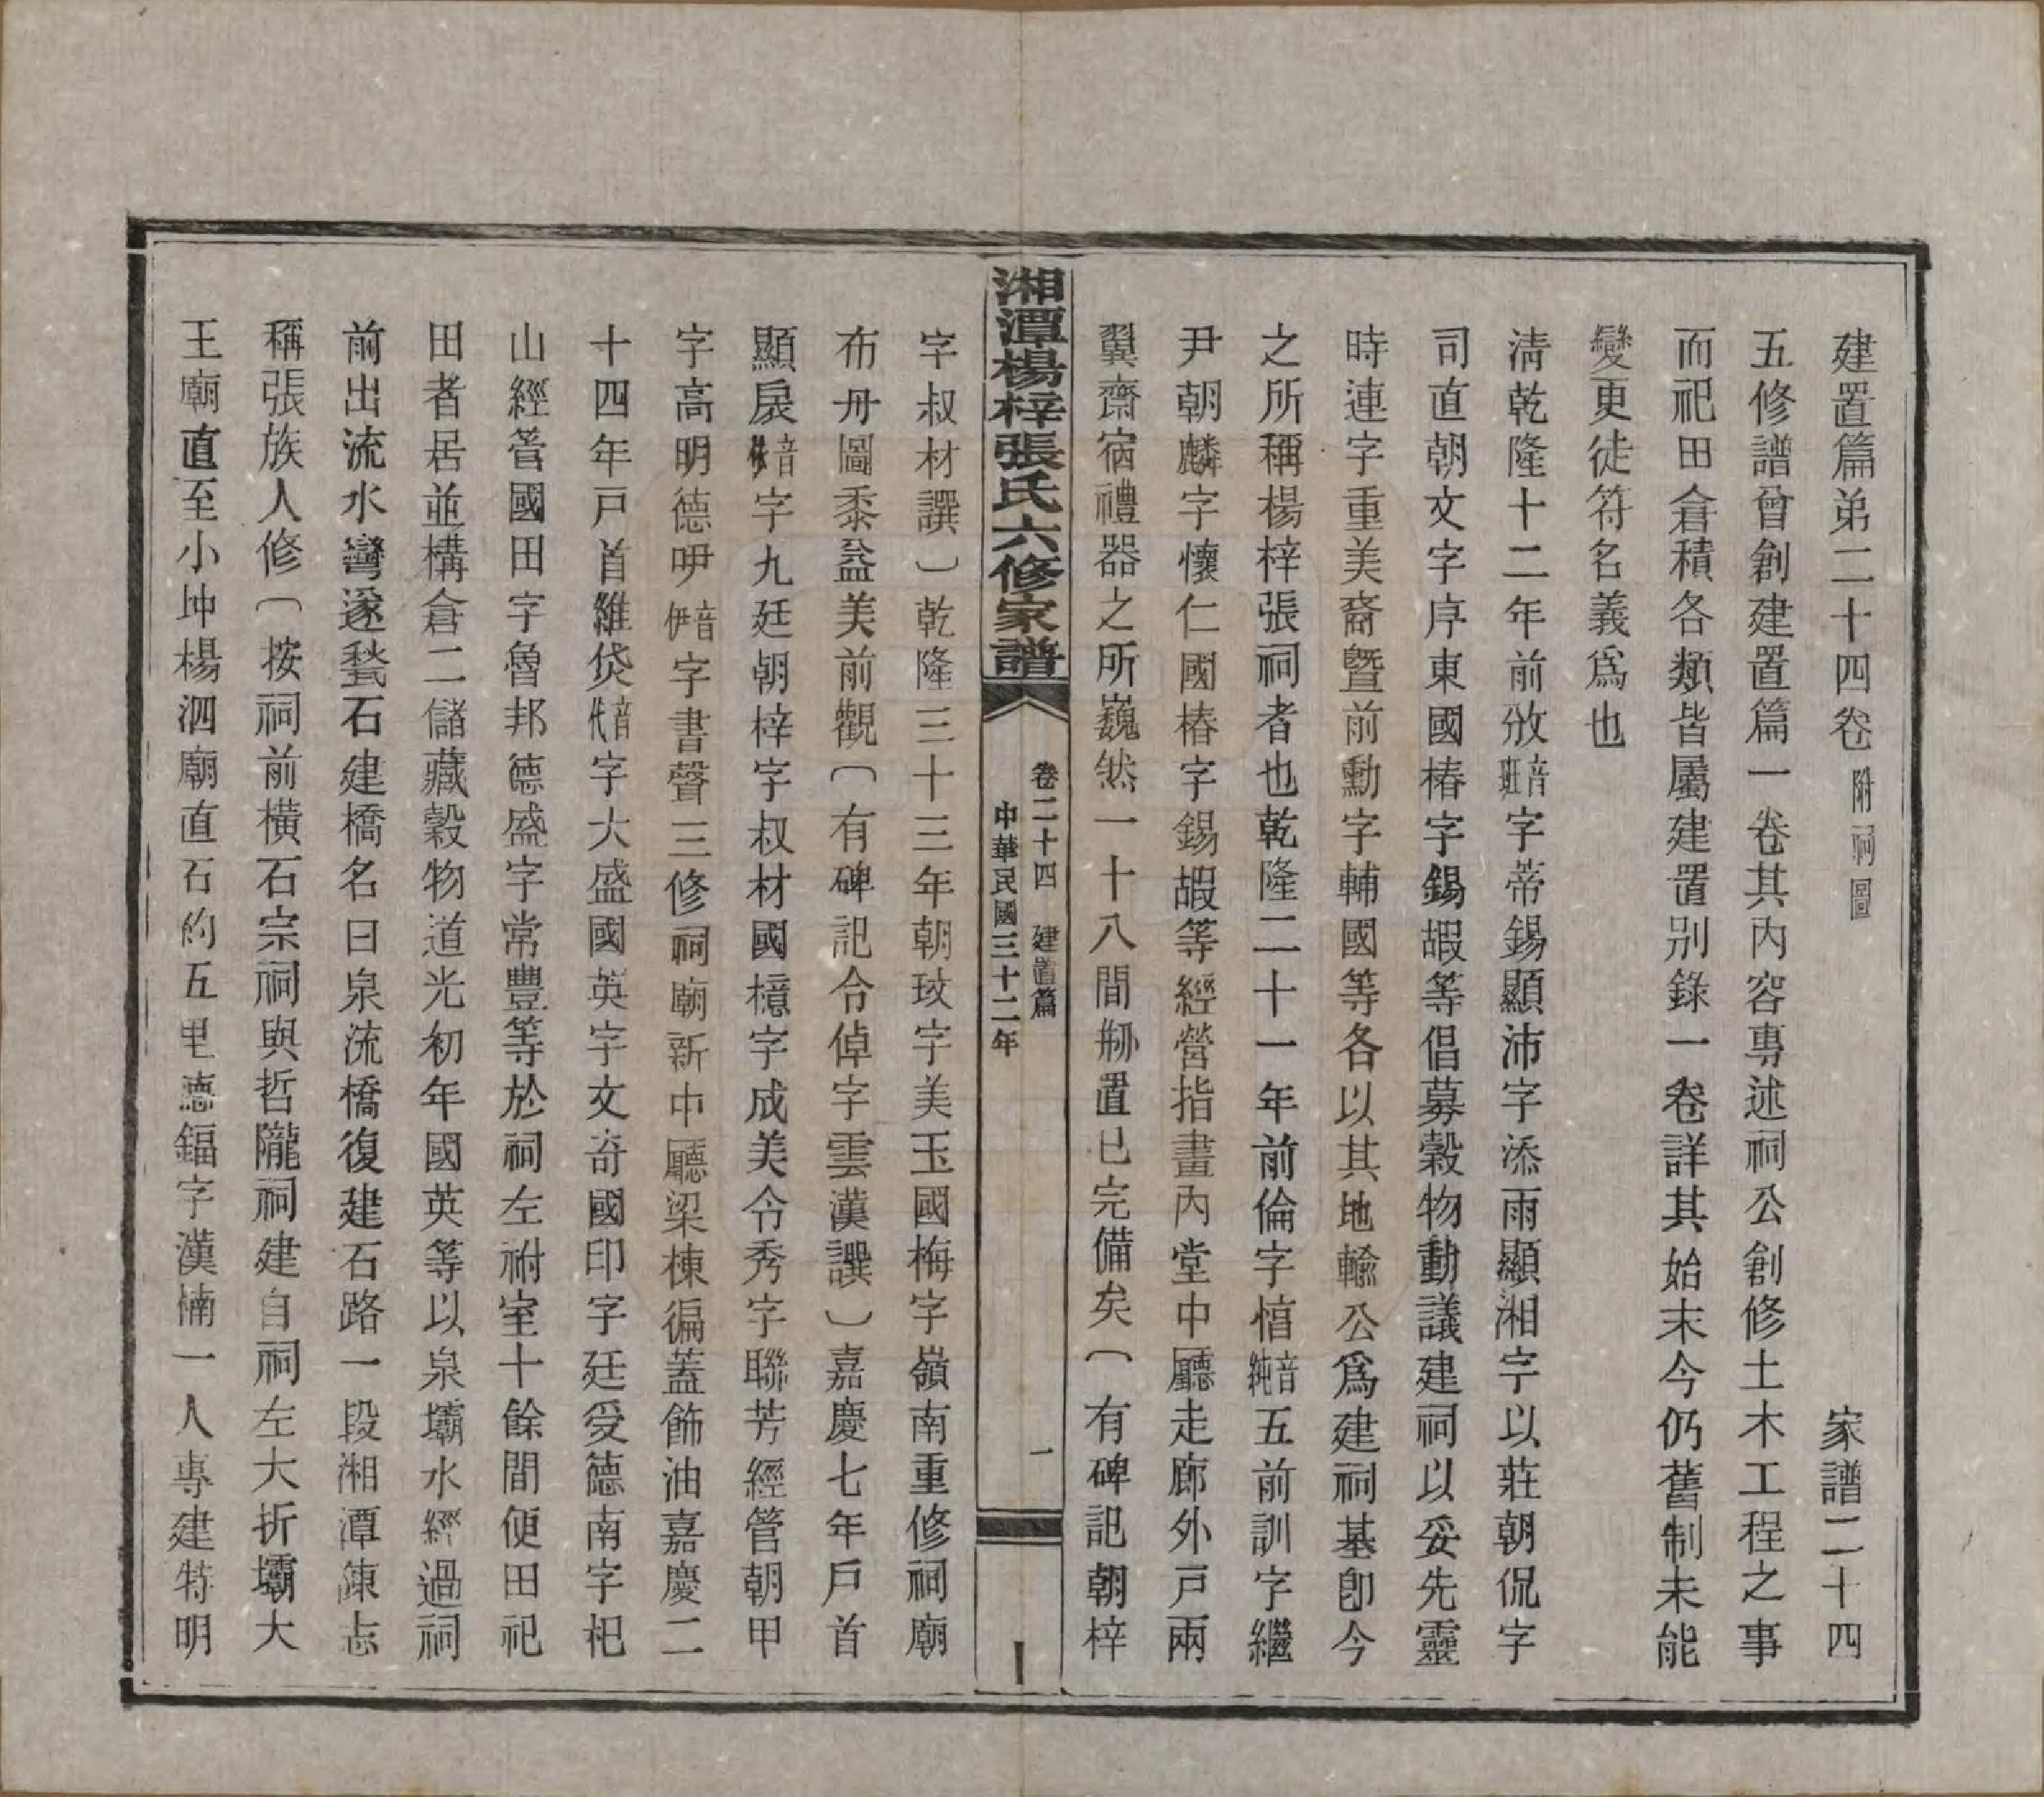 建置篇弟二十四卷 附祠圖 家譜二十四
五修譜曾創建置篇一卷其內容專述祠公創修土木工程之事
而祀田倉積各類皆屬建置別錄一卷詳其始末今仍舊制未能
變更徒符名義爲也
清乾隆十二年前攽音班字蒂錫顯沛字添雨顯湘字以莊朝侃字
司直朝文字序東國椿字錫嘏等倡募穀物動議建祠以妥先靈
時連字重美裔曁前勳字輔國等各以其地輸公爲建祠基卽今
之所稱楊梓張祠者也乾隆二十一年前倫字惛音純五前訓字繼
尹朝麟字懷仁國椿字錫嘏等經營指畫內堂中廳走廊外戸兩
翼齋宿禮器之所巍然一十八間剏置已完備矣〔有碑記朝梓
湘潭楊梓張氏六修家譜
卷二十四 建置篇
中華民國三十二年
一
字叔材譔〕乾隆三十三年朝玟字美玉國梅字嶺南重修祠廟
布冊圖黍益美前觀〔有碑記令倬字雲漢譔〕嘉慶七年戶首
顯扆音字九廷朝梓字叔材國檍字成美令秀字聯芳經管朝甲
字高明德吚音伊字書聲三修祠廟新中廳梁棟徧蓋飾油嘉慶二
十四年戸首維烄音字大盛國英字文奇國印字廷受德南字杞
山經菅國田字魯邦德盛字常豐等於祠左祔室十餘間便田祀
田者居並構倉二儲藏穀物道光初年國英等以泉壩水經過祠
前出流水彎遂甃石建橋名曰泉流橋復建石路一段湘潭鍊志
稱張族人修〔按祠前橫石宗祠與哲隴祠建自祠左大折壩大
王廟直至小坤楊泗廟直石約五里德鍢字漢楠一人專建特明